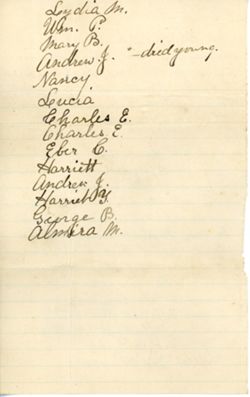 Lydia M.
Wm. P.
Mary B.
Andrew J. "-died young.
Nancy
Lucia
Charles E.
Charles E.
Eber C.
Harriett
Andrew J.
Harriet Y.
George B.
Almira M.